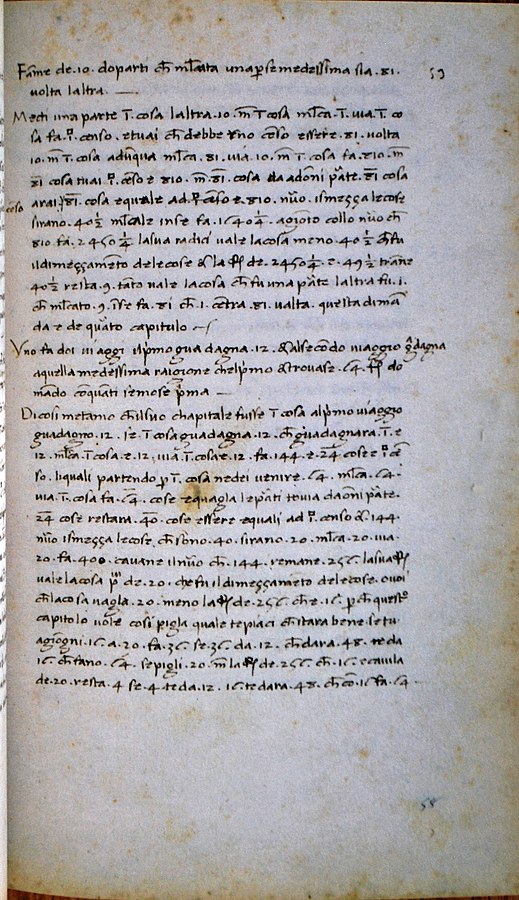 Fāme de .10. do parti ch̄ ml̄cata una p̲ se medessima sia .81.
59
volta laltra.
Mecti una parte .1̄. cosa laltra .10. m̄ .1̄. cosa ml̄ca .1̄. via .1̄. co
sa fa .1̄. censo. et vai ch̄ debbe uno censo essere .81. volta
10. m̄ .1̄. cosa adūqua ml̄ca .81. via .10. m̄ .1̄. cosa fa .810. m̄
81 cosa tu ai .1̄. ceso e 810. m̄ .81. cosa da adoni pāte. 81 cosa
arai .81. cosa equale ad .1̄. ceso e .810. nūo. ismeçça le cose
coso
sirano .40½ ml̄cale in se fa .1640¼. agioto collo nūo ch̄
810. fa .2450¼ la sua radici vale la cosa meno .40½ ch̄ fu
il dimeççamento dele cose la de .2450¼. e .49½ trāne
40½ resta .9. tāto vale la cosa ch̄ fu una pāte laltra fu .1.
ch̄ ml̄cato .9. ī se fa .81 ch̄ .1. cētra .81. valta. questa dimā
da e de quāto capitulo
Uno fa doi viaggi il pmo guadagna .12. & alsecōdo viaggio gdagna
a quella medessima raigione chel pmo & trovase .54. do
mādo con quāti se mose pma
Di cosi metamo ch̄ il suo chapitale fusse .1̄. cosa al pmo viaggio
guadagno .12. se .1̄. cosa guadagna .12. ch̄ guadagnara .1̄. e
12. ml̄ca .1̄. cosa e .12. via .1̄. cosa e .12. fa .144. e .24. cose e .1̄. cē
so. li quali partendo p .1̄. cosa ne dei venire .54. ml̄ca .54.
via .1̄. cosa fa .54. cose equagla le pāti te via da oni pāte.
24 cose restara .40. cose essere equali ad .1̄. censo & .144.
nūo ismeçça le cose ch̄ sono .40. sirano .20. ml̄ca .20. via
20. fa .400. cavane il nūo ch̄ .144. remane .256. la sua
vale la cosa pm̄ de .20. che fu il dimeççamēto dele cose. o voi
ch̄ la cosa vagla .20. meno la de .256. ch̄ e .16. p ch̄ questo
capitolo vole cosi pigla quale te piaci ch̄ stara bene se tu
agiōgni .16. a .20. fa .36. se .36. da .12. ch̄ dara .48. te da
16. ch̄ fano .64. se pigli .20. m̄ la de .256. ch̄ .16. e cavila
de .20. resta .4 se .4 te da .12. 16. te dara .48. ch̄ cō .16 fa .64
58